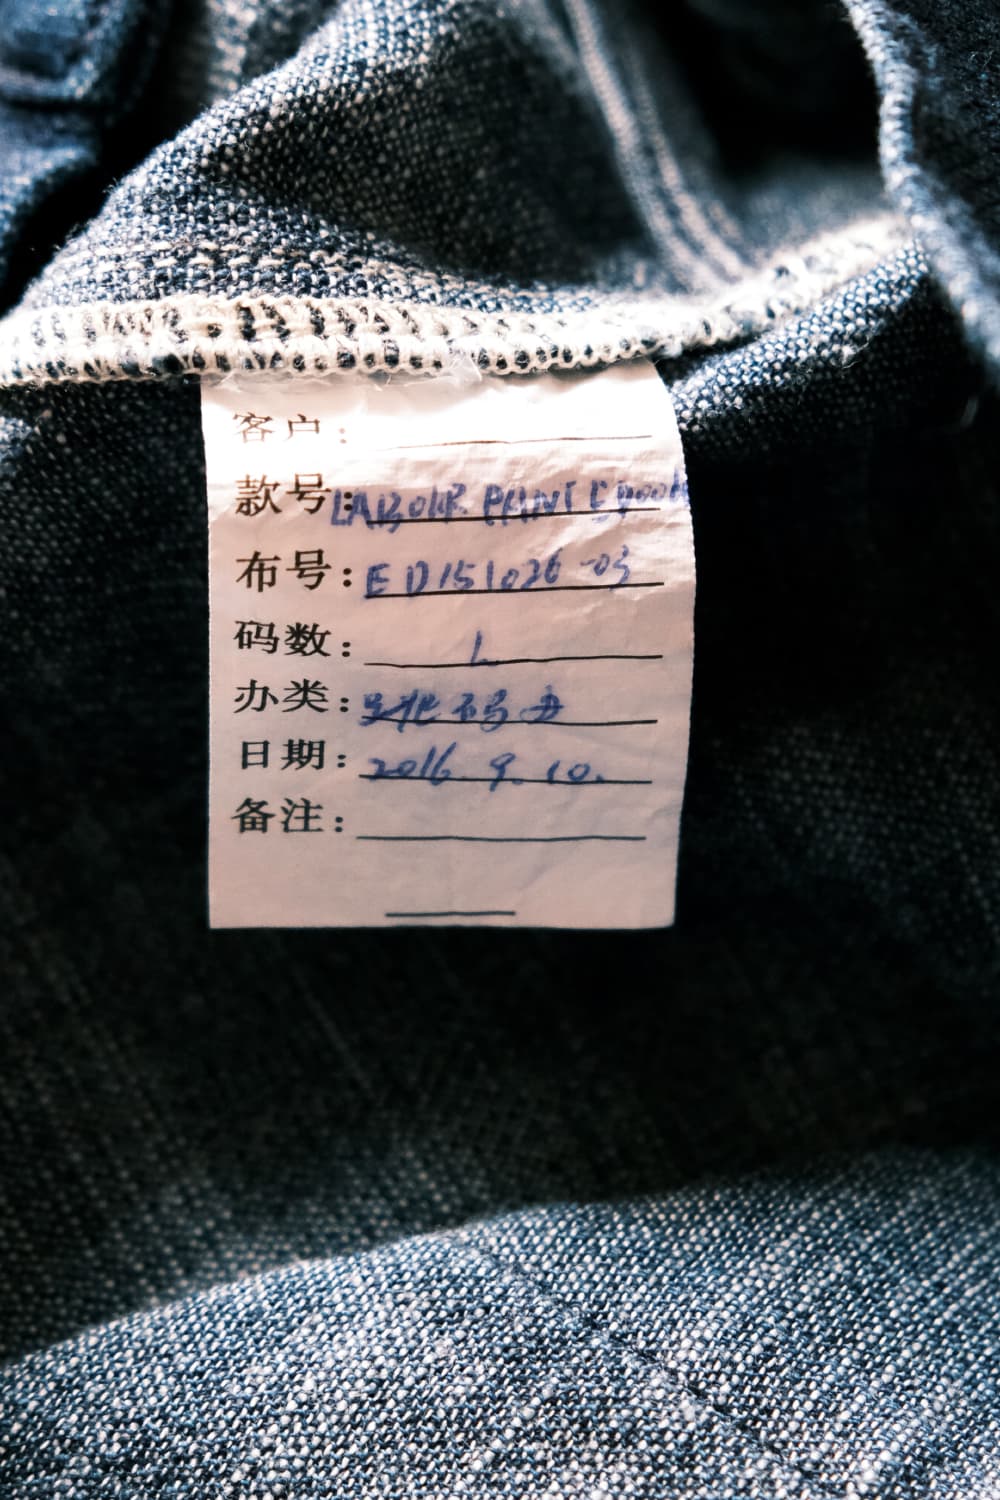 客户:
款号: LABOUR PANT
布号: ED151026-03
码数: L
办类: 码办
日期: 2016.9.10.
备注: